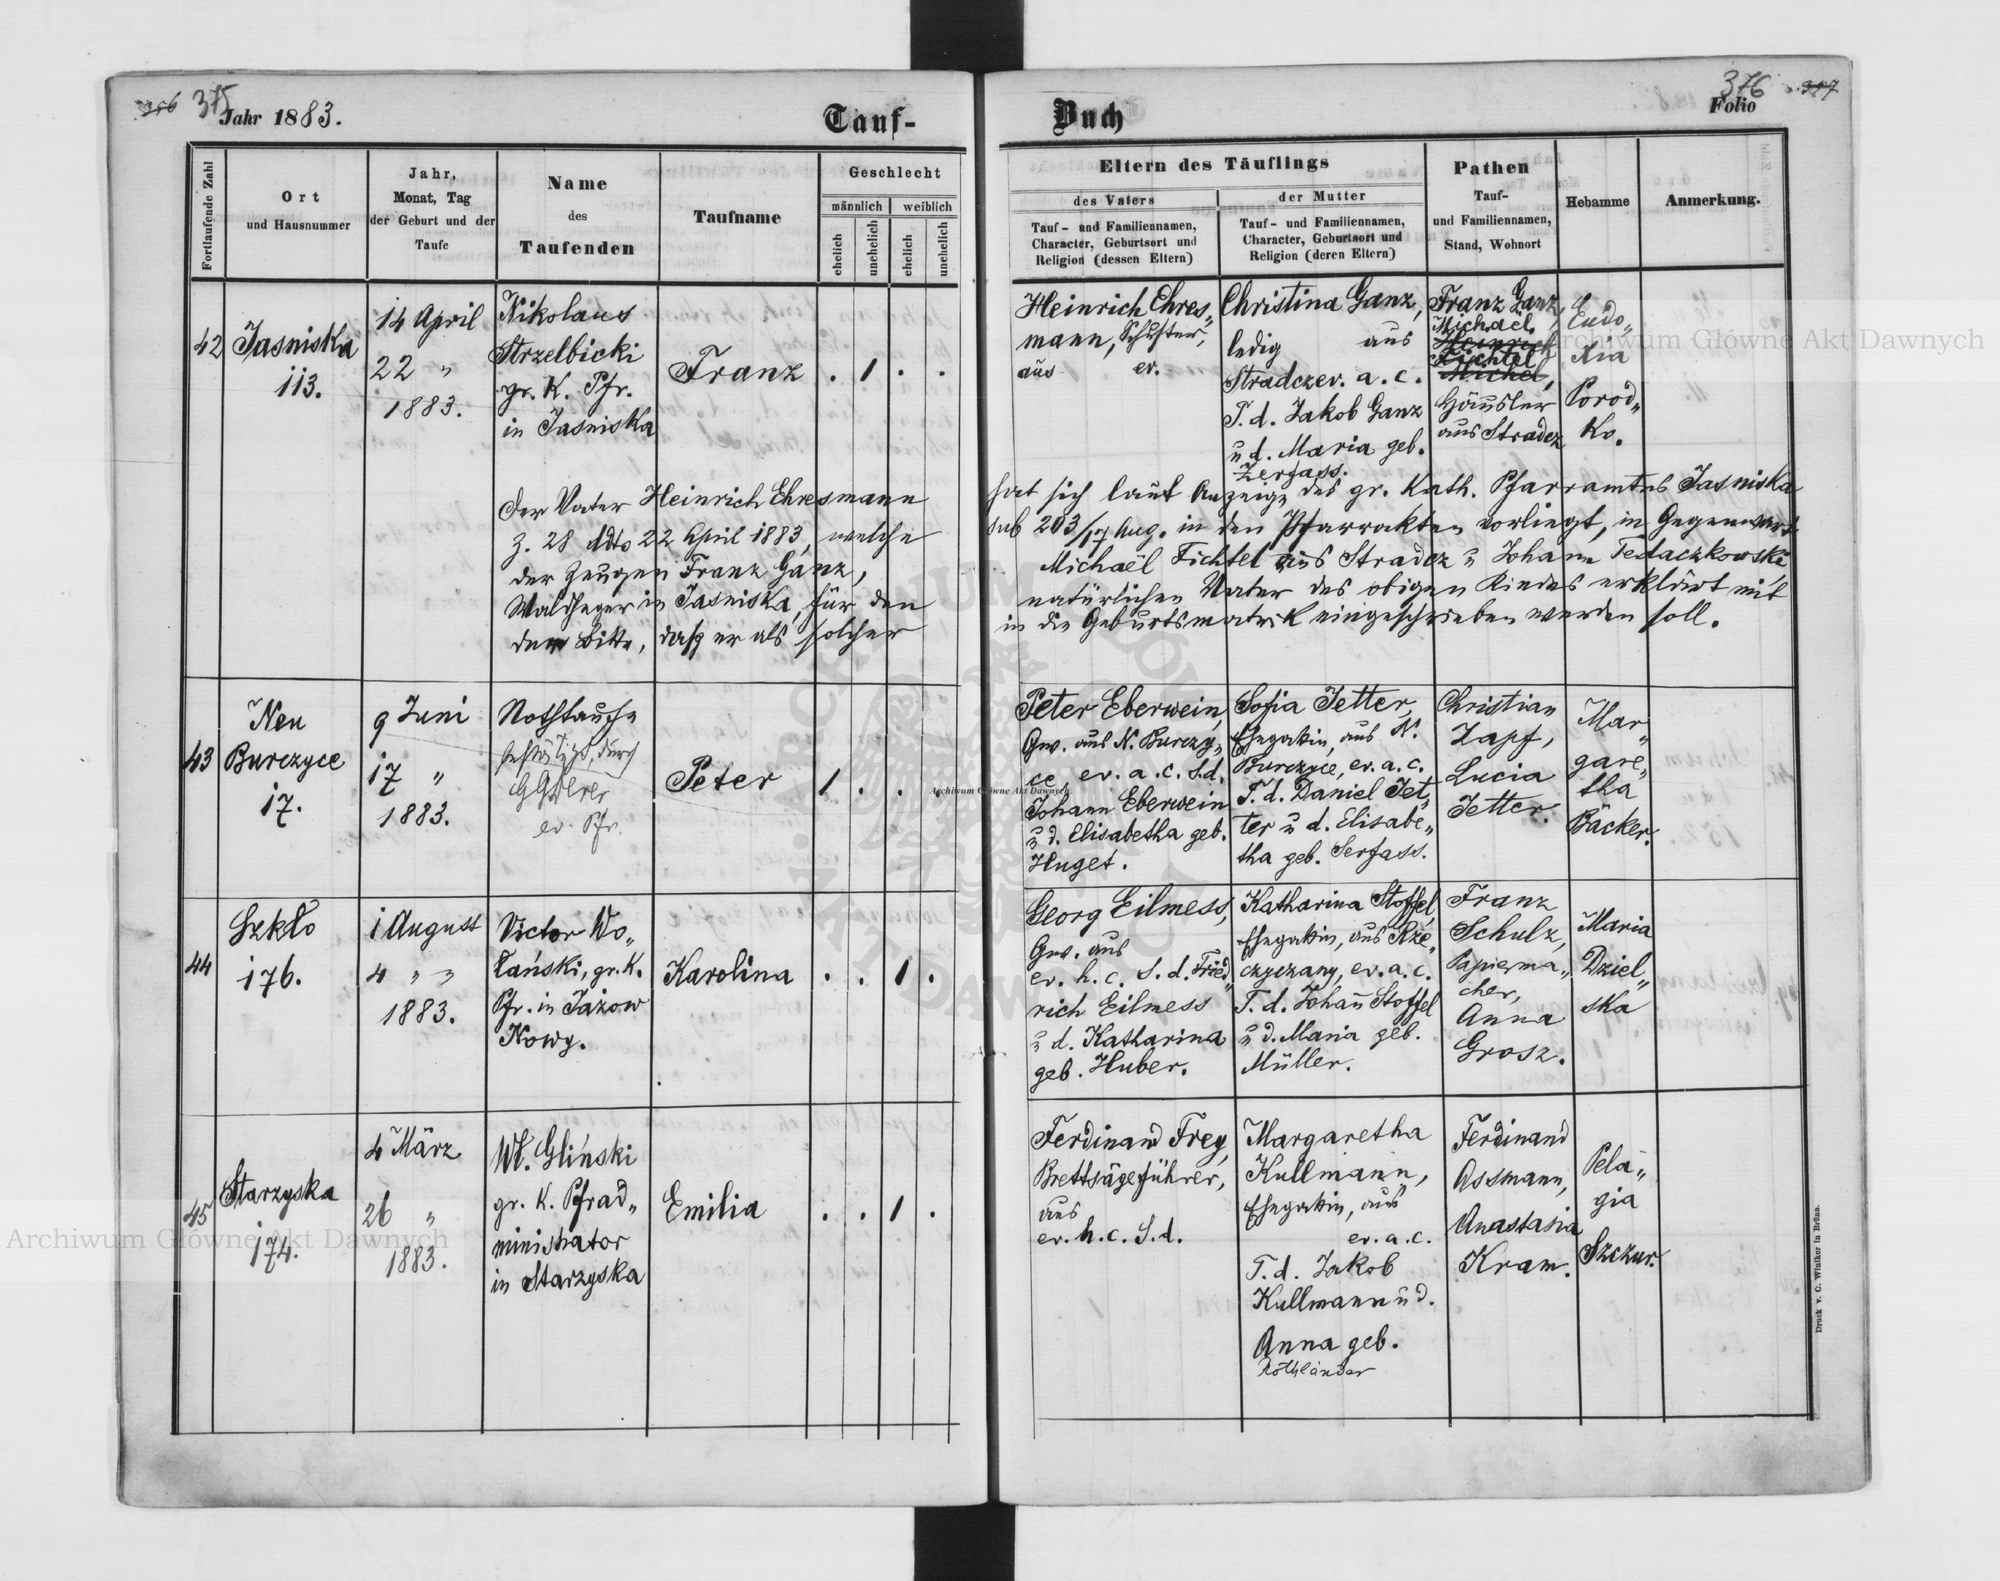 375
Jahr 1883.
Tauf-
Fortlaufende Zahl
Ort
und Hausnummer
Jahr,
Monat, Tag
der Geburt und der
Taufe
Name
des
Taufenden
Taufname
Geschlecht
männlich
weiblich
ehelich
unehelich
ehelich
unehelich
42
Jasniska
113.
14 April
22 "
1883.
Nikolaus
Strzelbicki
gr. K. Pfr.
in Jasniska
Franz
. 1 . .
Der Vater Heinrich Ehresmann
Z. 28 ddto 22 April 1883, welche
der Zeugen Franz Ganz,
Waldheger in Jasniska, für den
der Bitte, daß er als solcher
43
Neu
Burczyce
17.
9 Juni
17 "
1883.
Nothtaufe
bestätigt durch
ev. Pfr.
Peter
1 . . .
44
Szkło
176.
1 August
4 " "
1883.
Victor Wo„
łański, gr. K.
Pfr. in Jażow
Nowy.
Karolina
. . 1 .
45
Starzyska
174.
4 März
26 "
1883.
Wł. Gliński
gr. K. Pfrad„
ministrator
in Starzyska
Emilia
. . 1 .
376
Buch
Folio
Eltern des Täuflings
des Vaters
Tauf- und Familiennamen,
Character, Geburtsort und
Religion (dessen Eltern)
der Mutter
Tauf- und Familiennamen,
Character, Geburtsort und
Religion (deren Eltern)
Pathen
Tauf-
und Familiennamen,
Stand, Wohnort
Hebamme
Anmerkung.
Heinrich Ehres„
mann, Schuster,
aus ev.
Christina Ganz,
ledig aus
Stradcz ev. a. c.
T. d. Jakob Ganz
u d. Maria geb.
Zerfass.
Franz Ganz,
Michael
Heinrich
Fichtel,
Michel,
Häusler
aus Stradcz
Eudo„
Kia
Porod„
Ko.
hat sich laut Anzeige des gr. Kath. Pfarramtes Jasniska
sub 203/17 Aug. in den Pfarrakten vorliegt, in Gegenwart
Michaël Fichtel aus Stradcz u Johann Tedaczkowski
natürlichen Vater des obigen Kindes erklärt mit
in die Geburtsmatrik eingeschrieben werden soll.
Peter Eberwein,
Gw. aus N. Burczy„
ce, ev. a. c. S. d.
Johann Eberwein
u d. Elisabetha geb.
Huget.
Sofia Jetter,
Ehegattin, aus N.
Burczyce, ev. a. c.
T. d. Daniel Jet„
ter u d. Elisabe„
tha geb. Serfass.
Christian
Zapf,
Lucia
Jetter.
Mar„
gare„
tha
Bäcker.
Georg Eilmess,
Gw. aus
ev. h. c. S. d. Fried„
rich Eilmess
u d. Katharina
geb. Huber.
Katharina Stoffel,
Ehegattin, aus Rze„
czyczany, ev. a. c.
T. d. Johañ Stoffel
u d. Maria geb.
Müller.
Franz
Schulz,
Papierma„
cher,
Anna
Grosz.
Maria
Dziel„
ska
Ferdinand Frey,
Brettsägeführer,
aus
ev. h. c. S. d.
Margaretha
Kullmann,
Ehegattin, aus
ev. a. c.
T. d. Jakob
Kullmann u d.
Anna geb.
Rothländer
Ferdinand
Assmann,
Anastasia
Kram.
Pela„
gia
Szczur.
Druck v. C. Winiker in Brünn.
Archiwum Główne Akt Dawnych
Archiwum Główne Akt Dawnych
Archiwum Główne Akt Dawnych